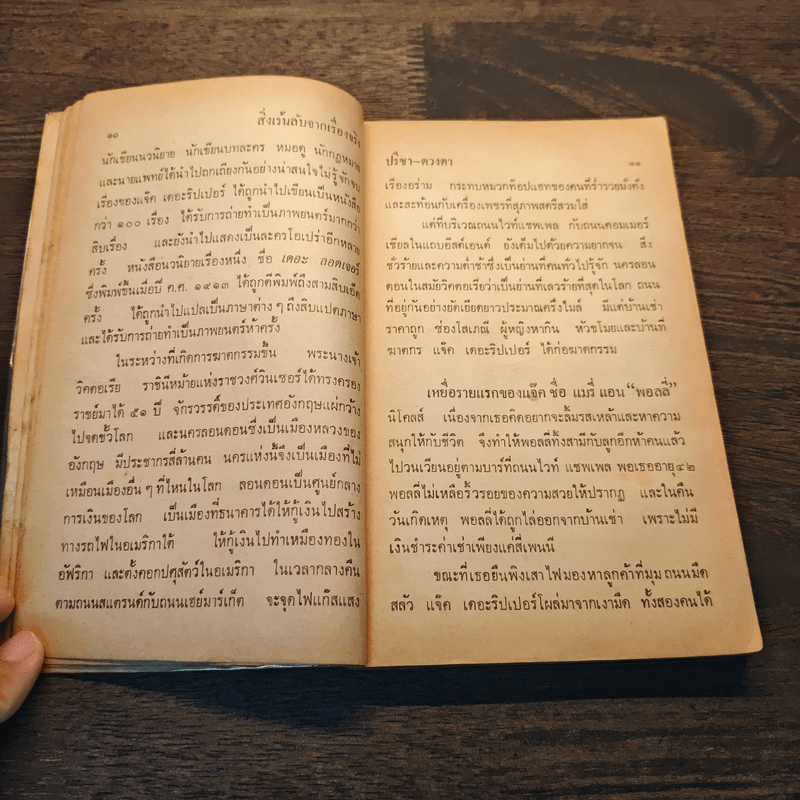 ๑๐ สิ่งเร้นลับจากเรื่องจริง
นักเขียนนวนิยาย นักเขียนบทละคร หมอดู นักกฎหมาย
และนายแพทย์ได้นำไปถกเถียงกันอย่างน่าสนใจไม่รู้จักจบ
เรื่องของแจ๊ค เดอะริปเปอร์ ได้ถูกนำไปเขียนเป็นหนังสือ
กว่า ๑๐๐ เรื่อง ได้รับการถ่ายทำเป็นภาพยนตร์มากกว่า
สิบเรื่อง และยังนำไปแสดงเป็นละครโอเปร่าอีกหลาย
ครั้ง หนังสือนวนิยายเรื่องหนึ่ง ชื่อ เดอะ ลอดเจอร์
ซึ่งพิมพ์ขึ้นเมื่อปี ค.ศ. ๑๙๑๓ ได้ถูกตีพิมพ์ถึงสามสิบเอ็ด
ครั้ง ได้ถูกนำไปแปลเป็นภาษาต่าง ๆ ถึงสิบแปดภาษา
และได้รับการถ่ายทำเป็นภาพยนตร์ห้าครั้ง
ในระหว่างที่เกิดการฆาตกรรมขึ้น พระนางเจ้า
วิคตอเรีย ราชินีหม้ายแห่งราชวงศ์วินเซอร์ได้ทรงครอง
ราชย์มาได้ ๕๑ ปี จักรวรรดิ์ของประเทศอังกฤษแผ่กว้าง
ไปจดขั้วโลก และนครลอนดอนซึ่งเป็นเมืองหลวงของ
อังกฤษ มีประชากรสี่ล้านคน นครแห่งนี้จึงเป็นเมืองที่ไม่
เหมือนเมืองอื่น ๆ ที่ไหนในโลก ลอนดอนเป็นศูนย์กลาง
การเงินของโลก เป็นเมืองที่ธนาคารได้ให้กู้เงินไปสร้าง
ทางรถไฟในอเมริกาใต้ ให้กู้เงินไปทำเหมืองทองใน
อัฟริกา และตั้งคอกปศุสัตว์ในอเมริกา ในเวลากลางคืน
ตามถนนสแตรนด์กับถนนเฮย์มาร์เก็ต จะจุดไฟแก๊สแสง
ปรีชา-ดวงตา ๑๑
เรืองอร่าม กระทบหมวกท็อปแฮทของคนที่ร่ำรวยมั่งคั่ง
และสะท้อนกับเครื่องเพชรที่สุภาพสตรีสวมใส่
แต่ที่บริเวณถนนไวท์แชพเพล กับถนนคอมเมอร์
เชียลในแถบอีสต์เอนด์ ยังเต็มไปด้วยความยากจน สิ่ง
ชั่วร้ายและความต่ำช้าซึ่งเป็นย่านที่คนทั่วไปรู้จัก นครลอน
ดอนในสมัยวิคตอเรียว่าเป็นย่านที่เลวร้ายที่สุดในโลก ถนน
ที่อยู่กันอย่างยัดเยียดยาวประมาณครึ่งไมล์ มีแต่บ้านเช่า
ราคาถูก ซ่องโสเภณี ผู้หญิงหากิน หัวขโมยและบ้านที่
ฆาตกร แจ๊ค เดอะริปเปอร์ ได้ก่อฆาตกรรม
เหยื่อรายแรกของแจ๊ค ชื่อ แมรี่ แอน “พอลลี่”
นิโคลส์ เนื่องจากเธอคิดอยากจะลิ้มรสเหล้าและหาความ
สนุกให้กับชีวิต จึงทำให้พอลลี่ทิ้งสามีกับลูกอีกห้าคนแล้ว
ไปวนเวียนอยู่ตามบาร์ที่ถนนไวท์ แชพเพล พอเธออายุ๔๒
พอลลี่ไม่เหลือริ้วรอยของความสวยให้ปรากฏ และในคืน
วันเกิดเหตุ พอลลี่ได้ถูกไล่ออกจากบ้านเช่า เพราะไม่มี
เงินชำระค่าเช่าเพียงแค่สี่เพนนี
ขณะที่เธอยืนพิงเสาไฟมองหาลูกค้าที่มุมถนนมืด
สลัว แจ๊ค เดอะริปเปอร์โผล่มาจากเงามืด ทั้งสองคนได้